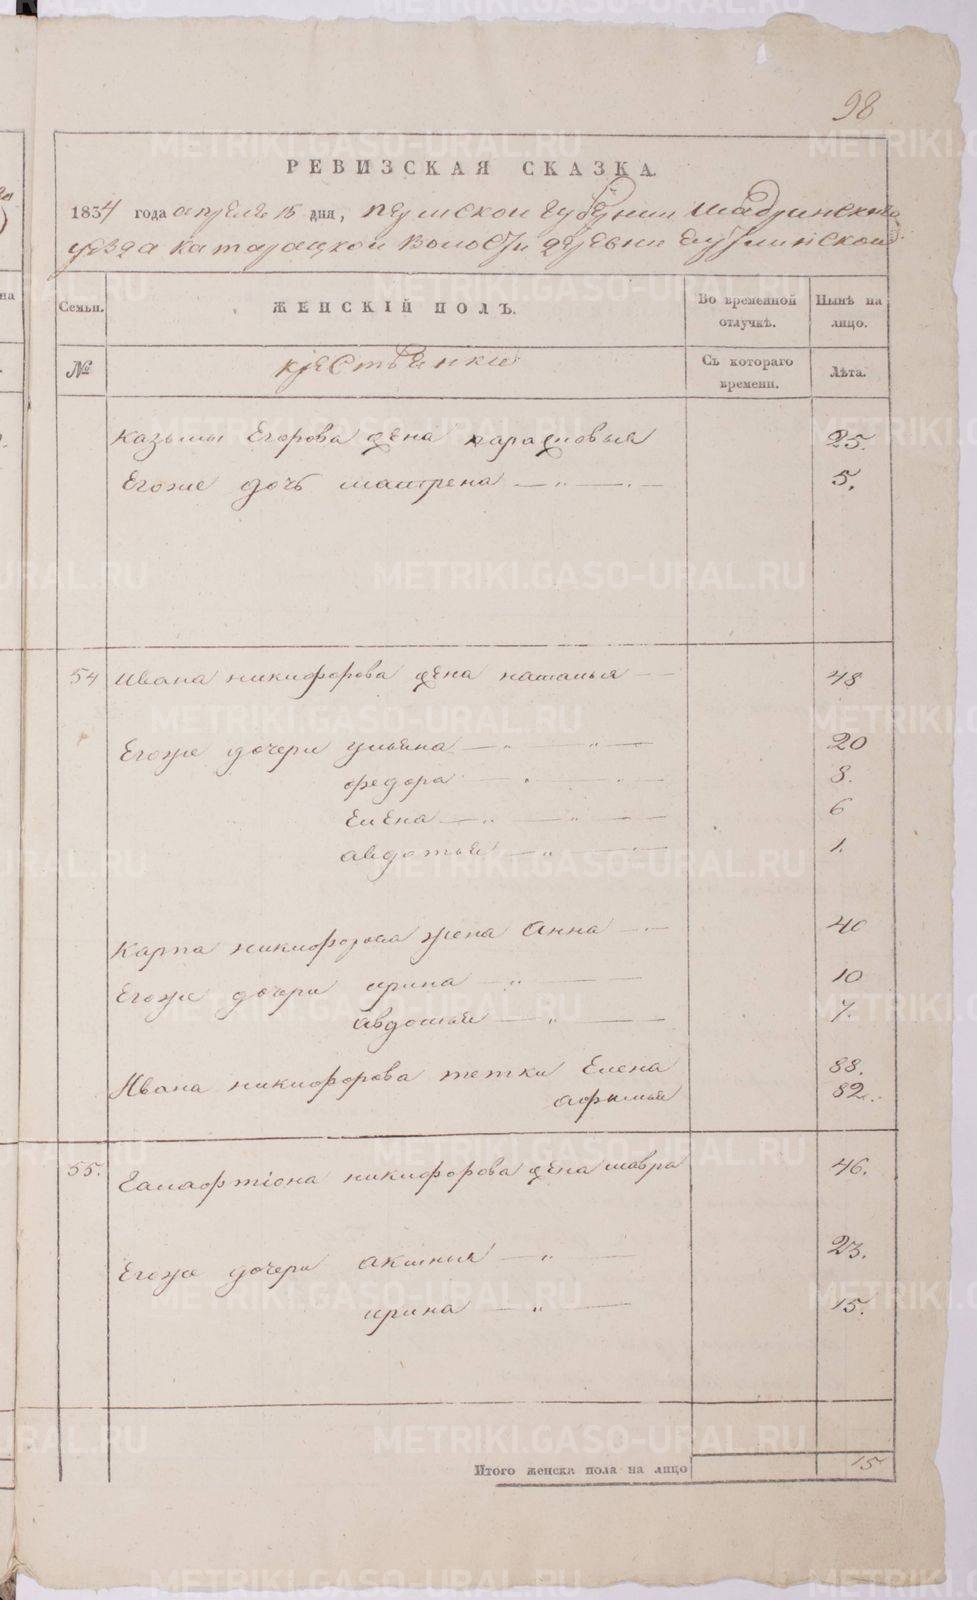 98
РЕВИЗСКАЯ СКАЗКА.
1834 года апреля 15 дня, пермской губернии Шадринскаго
уезда катарацкой волости деревни
Семьи. ЖЕНСКІЙ ПОЛЪ. Во временной отлучкѣ. Нынѣ на лицо.
№ крестьянки Съ котораго времени. Лѣта.
казьмы Егорова жена 25.
Егоже дочь матрена 5.
54 ивана никифорова жена наталья 48
Егоже дочери ульяна 20
федора 8.
Елена 6
авдотья 1.
Карпа никифорова жена Анна 40
Егоже дочери ирина 10
авдотья 7.
Ивана никифорова тетки Елена 88.
афимья 82.
55. Галафтіона никифорова жена мавра 46.
Егоже дочери аксинья 23.
ирина 15.
Итого женска пола на лицо 15
METRIKI.GASO-URAL.RU